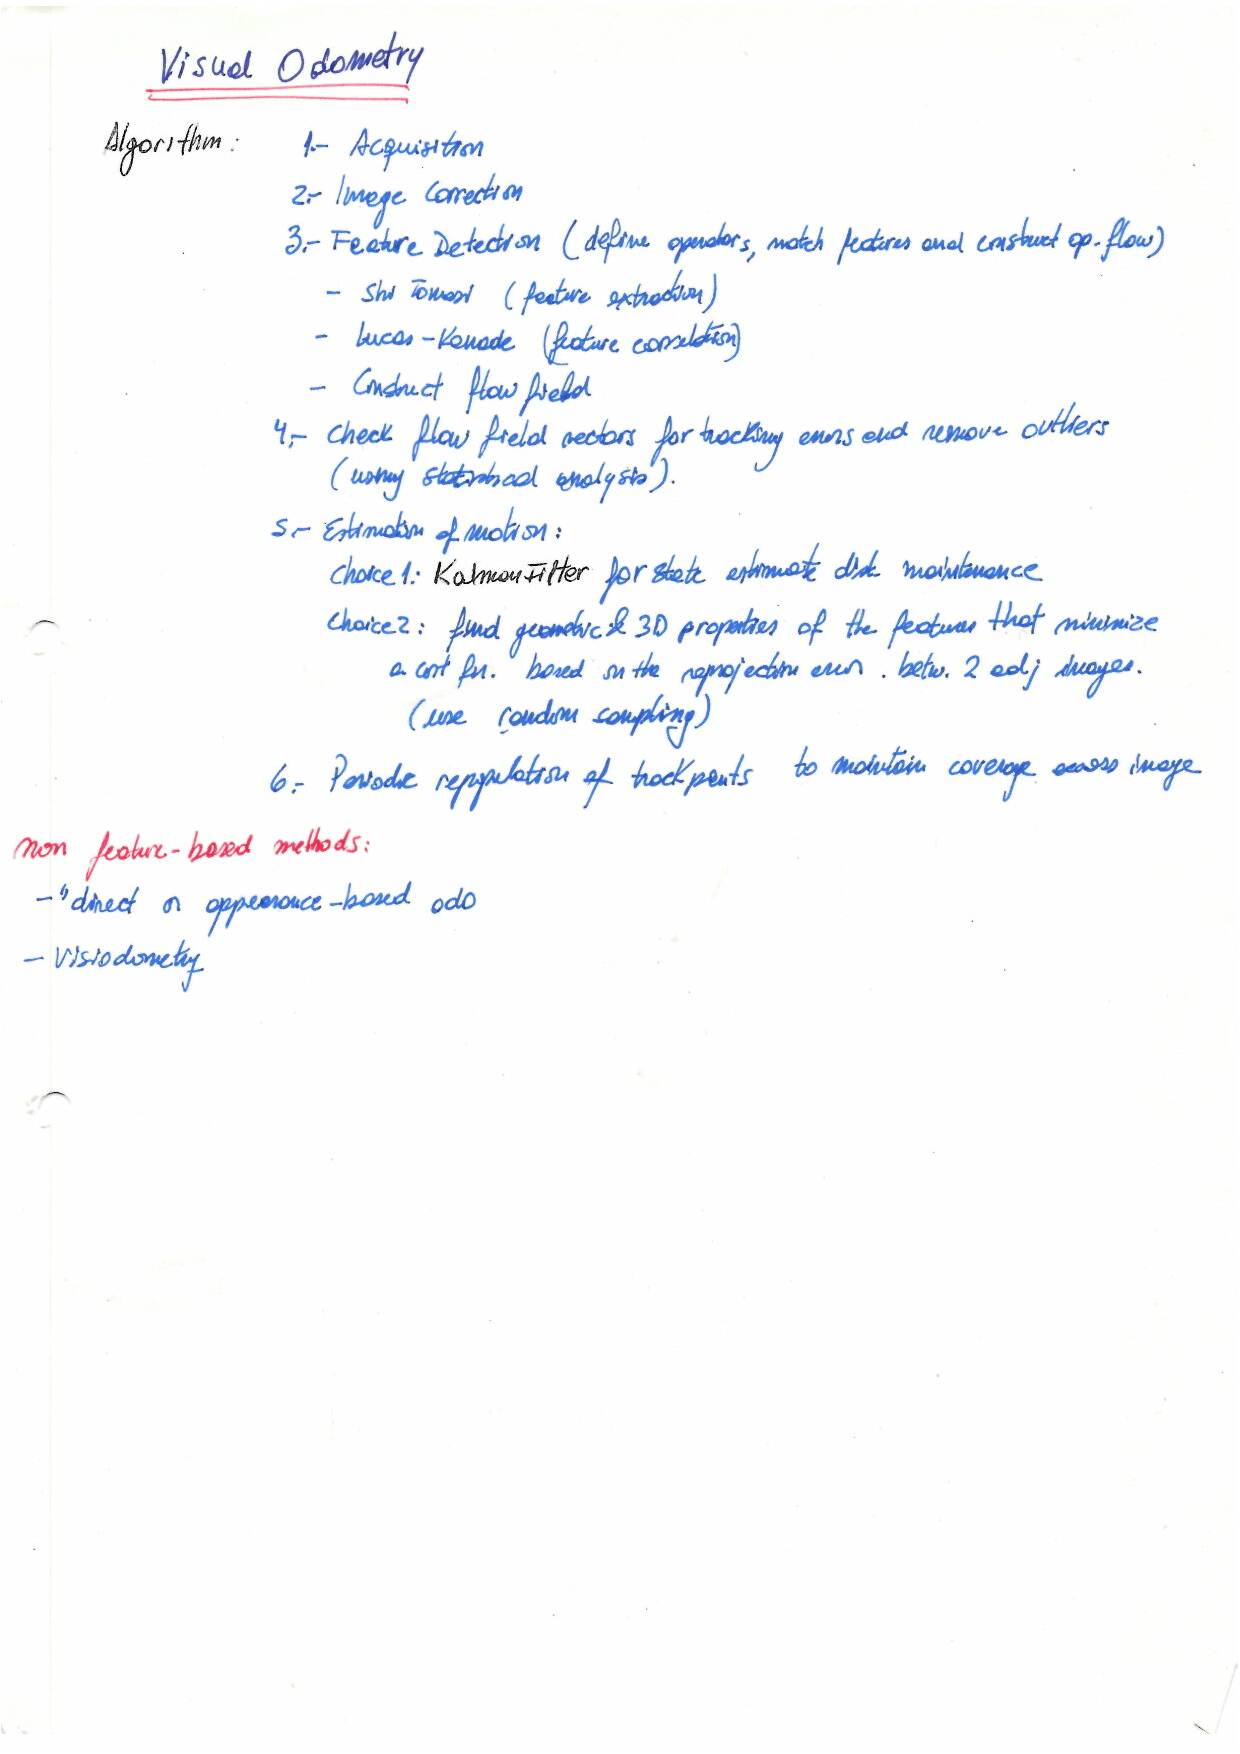 Visual Odometry
Algorithm: 1.- Acquisition
2.- Image Correction
3.- Feature Detection (define operators, match features and construct op. flow)
- Shi Tomasi (feature extraction)
- Lucas-Kanade (feature correlation)
- Construct flow field
4.- Check flow field vectors for tracking errors and remove outliers
(using statistical analysis).
5.- Estimation of motion:
Choice 1: Kalman Filter for state estimate dist. maintenance
Choice 2: find geometric & 3D properties of the features that minimize
a cost fn. based on the reprojection error. betw. 2 adj images.
(use random sampling)
6.- Periodic repopulation of trackpoints to maintain coverage across image
non feature-based methods:
- "direct or appearance-based odo
- Visiodometry